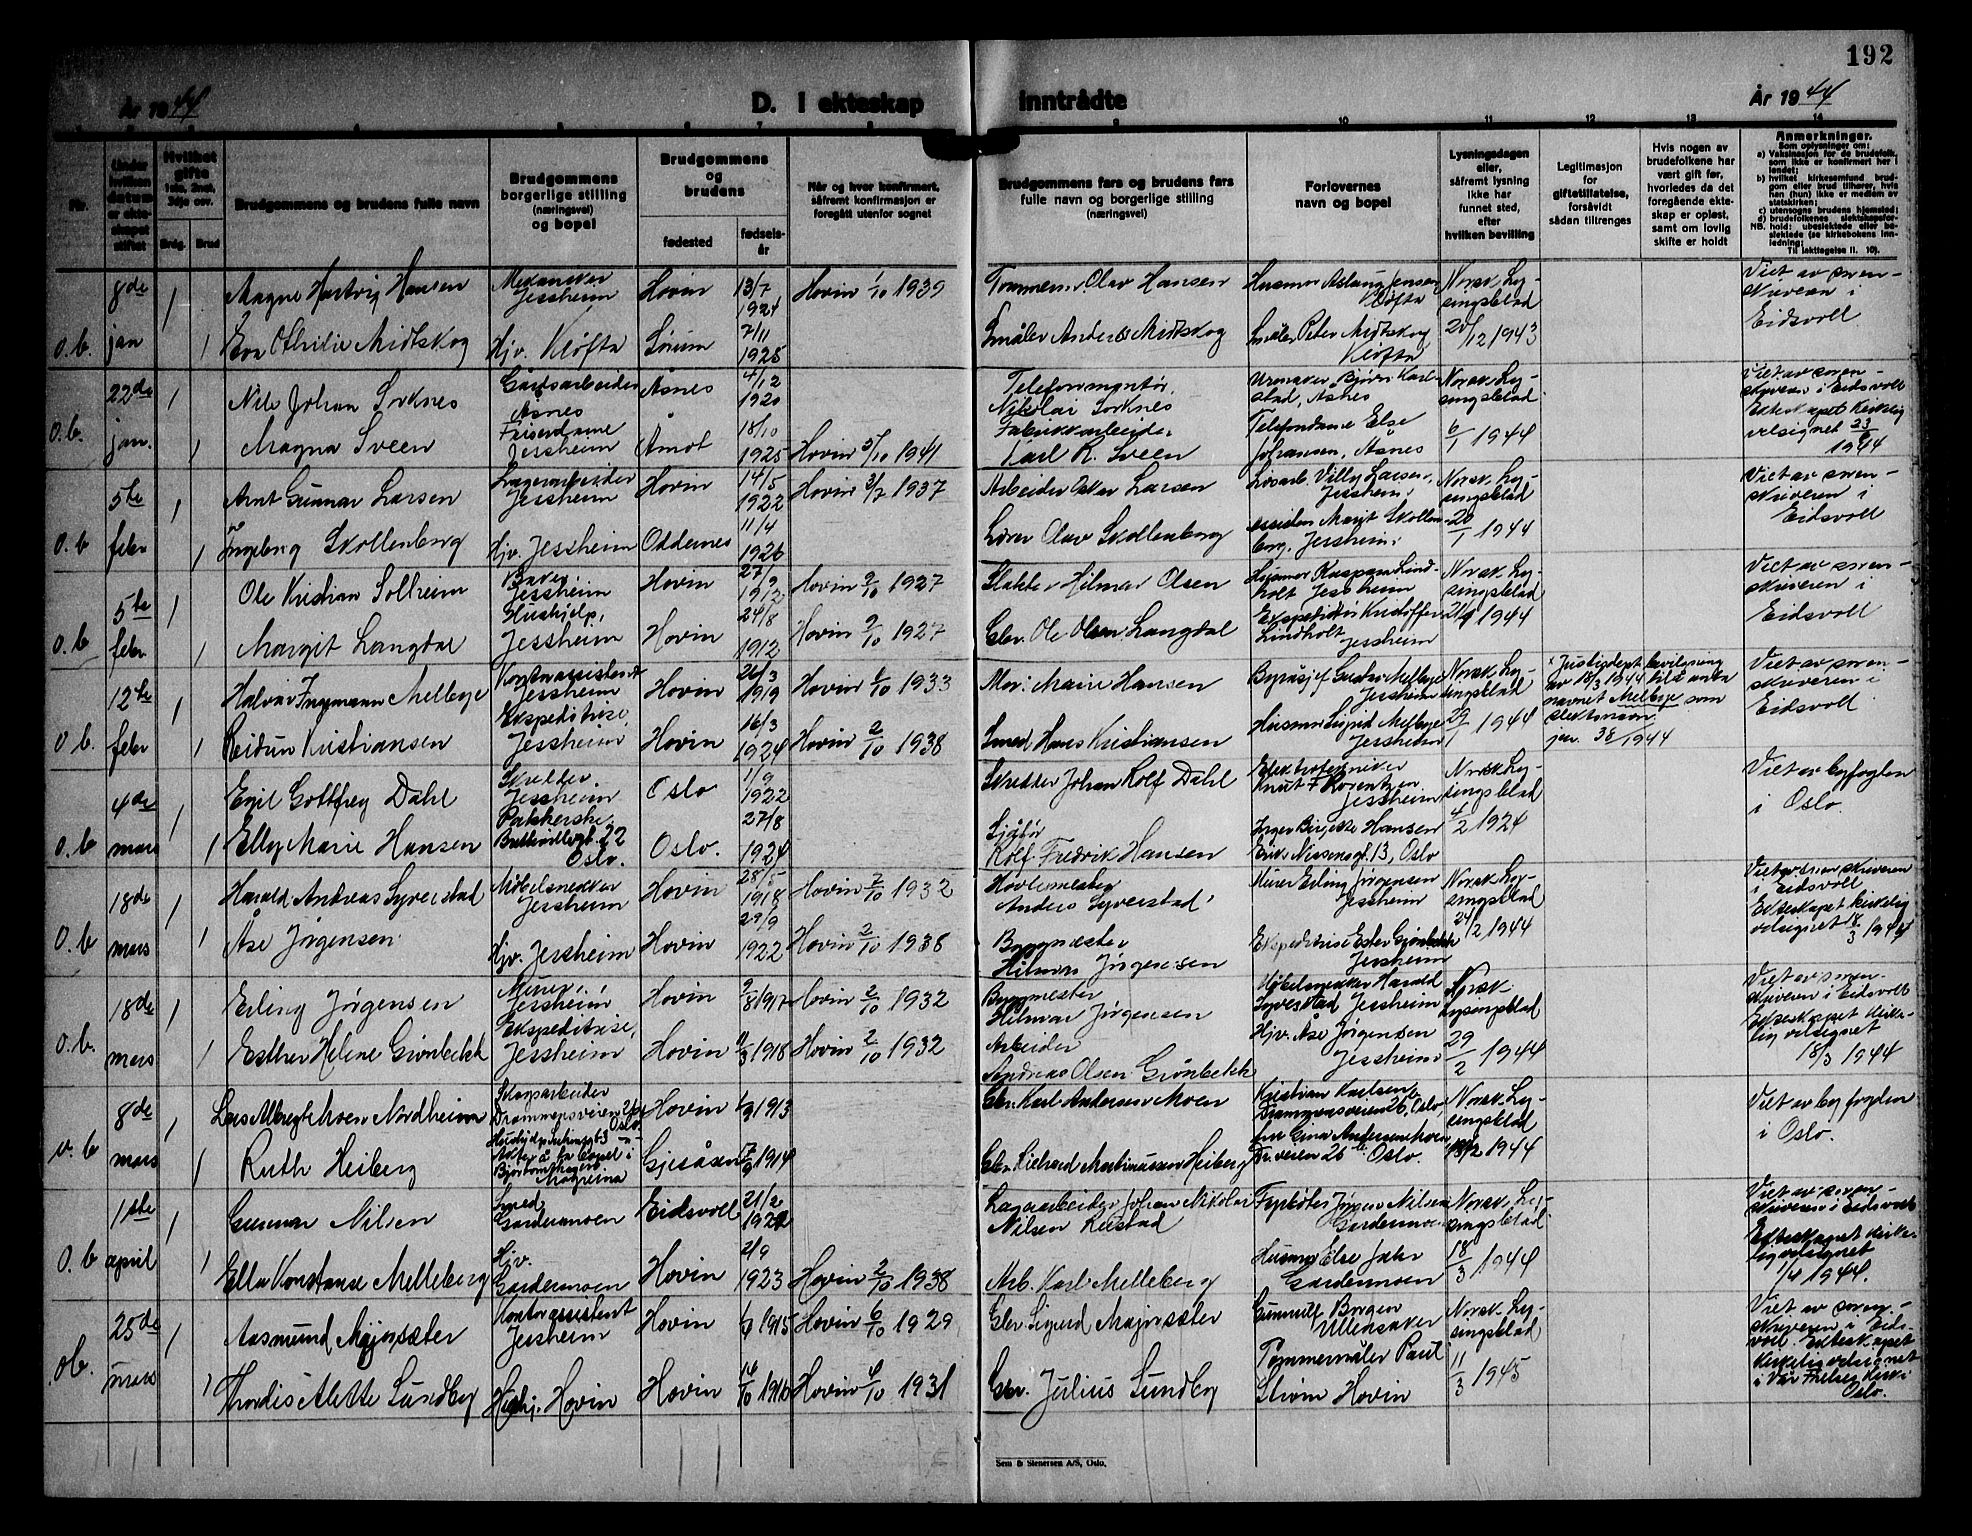 192
År 1944
D. I ekteskap inntrådte
År 1944
1 2 3 4 5 6 7 8 9 10 11 12 13 14
Nr.
Under hvilken datum er ekteskapet stiftet
Hvilket gifte 1ste, 2net, 3dje osv.
Brdg. Brud
Brudgommens og brudens fulle navn
Brudgommens borgerlige stilling (næringsvei) og bopel
Brudgommens og brudens
fødested
fødselsår
Når og hvor konfirmert, såfremt konfirmasjon er foregått utenfor sognet
Brudgommens fars og brudens fars fulle navn og borgerlige stilling (næringsvei)
Forlovernes navn og bopel
Lysningsdagen eller, såfremt lysning ikke har funnet sted, efter hvilken bevilling
Legitimasjon for giftetillatelse, forsåvidt sådan tiltrenges
Hvis nogen av brudefolkene har vært gift før, hvorledes da det foregående ekteskap er opløst, samt om lovlig skifte er holdt
Anmerkninger.
Som oplysninger om:
a) Vaksinasjon for de brudefolk, som ikke er konfirmert her i landet;
b) hvilket kirkesamfund brudgom eller brud tilhører, hvis han (hun) ikke er medlem av statskirken;
c) utensogns brudens hjemsted;
d) brudefolkenes slektskapsforhold: ubeslektede eller beslektede (se kirkebokens innledning;
NB. Til iakttagelse II. 10).
8de 1 Magne Hartvig Hansen Mekaniker Jessheim Hovin 13/7 1924 Hovin 1/10 1939 Tømmerm. Olav Hansen Husmor Aslaug Jensen Kløfta Norsk Lysingsblad Viet av sorenskriveren i Eidsvoll
o.b. jan 1 Eva Othilie Midtskog Hjv. Kløfta Sørum 7/11 1925 Småbr. Anders Midtskog Småbr. Peter Midtskog Kløfta 20/12 1943
22de 1 Nils Johan Sorknes Gårdsarbeider Åsnes Åsnes 4/12 1920 Telefonmontør Nikolai Sorknes Urmaker Bjørn Karlstad, Åsnes Norsk Lysingsblad Viet av sorenskriveren i Eidsvoll
o.b. jan. 1 Magna Sveen Frisørdame Jessheim Åmot 18/10 1925 Hovin 5/10 1941 Fabrikkarbeider Karl R. Sveen Telefondame Else Johansen, Åsnes 6/1 1944 Ekteskapet kirkelig velsignet 1944
5te 1 Arnt Gunnar Larsen Lagerarbeider Jessheim Hovin 14/5 1922 Hovin 3/7 1937 Arbeider Oskar Larsen Løsarb. Villy Larsen, Jessheim Norsk Lysingsblad Viet av sorenskriveren i Eidsvoll
o.b febr 1 Ingeborg Skollenborg Hjv. Jessheim Oddernes 11/4 1926 Lærer Olav Skollenborg Margit Skollenborg, Jessheim 20/1 1944
5te 1 Ole Kristian Solheim Baker Jessheim Hovin 27/9 1912 Hovin 2/10 1927 Slakter Hilmar Olsen Husmor Lindholt Jessheim Norsk Lysingsblad Viet av sorenskriveren i Eidsvoll
o.b febr 1 Margit Langdal Hushjelp, Jessheim Hovin 24/8 1912 Hovin 2/10 1927 Gbr. Ole Olsen Langdal Ekspeditør Kristoffer Lindholt Jessheim 21/1 1944
12te 1 Halvar Ingemann Melbye Kontorassistent Jessheim Hovin 26/3 1919 Hovin 1/10 1933 Mor: Marie Hansen Byråsjef Gustav Melbye Jessheim Norsk Lysingsblad Justisdept. bevilgning av 18/3 1944 til å anta navnet Melbye som slektsnavn Viet av sorenskriveren i Eidsvoll
o.b. febr 1 Reidun Kristiansen Ekspeditrise, Jessheim Hovin 16/3 1924 Hovin 2/10 1938 Smed Hans Kristiansen Husmor Sigrid Melbye Jessheim 29/1 1944
4de 1 Egil Gottfrey Dahl Skredder Jessheim Oslo 1/9 1922 Skredder Johan Rolf Dahl Elektrotekniker Knut F. Lorentzen Jessheim Norsk Lysingsblad Viet av byfogden i Oslo.
o.b mars 1 Elly Marie Hansen Pakkerske 22 Oslo. Oslo. 27/8 1924 Sjåfør Rolf Fredrik Hansen Inger Birgitte Hansen Eriks Nissensgt. 13, Oslo 4/2 1924
18de 1 Harald Andreas Syverstad Møbelsnekker Jessheim Hovin 28/5 1918 Hovin 2/10 1932 Høvlemester Anders Syverstad Murer Erling Jørgensen Jessheim Norsk Lysingsblad Viet av sorenskriveren i Eidsvoll
o.b mars 1 Åse Jørgensen Hjv. Jessheim Hovin 29/9 1922 Hovin 2/10 1938 Byggmester Hilmar Jørgensen Ekspeditrise Ester Grønbekk Jessheim 24/2 1944 Ekteskapet kirkelig velsignet 18/3 1944
18de 1 Erling Jørgensen Murer, Jessheim Hovin 9/8 1917 Hovin 2/10 1932 Byggmester Hilmar Jørgensen Møbelsnekker Harald Syverstad Jessheim Norsk Lysingsblad Viet av sorenskriveren i Eidsvoll
o.b. mars 1 Esther Helene Grønbekk Ekspeditrise, Jessheim Hovin 1918 Hovin 2/10 1932 Arbeider Andreas Olsen Grønbekk Hjv. Åse Jørgensen Jessheim 29/2 1944 Ekteskapet kirkelig velsignet 18/3 1944
8de 1 Moen Nordheim Skogsarbeider Drammensveien Oslo Hovin 1913 Gbr. Karl Andersen Moen Kristian Karlsen Drammensveien 26, Oslo Norsk Lysingsblad Viet av byfogden i Oslo.
o.b mars 1 Ruth Heiberg Gjesåsen 1914 Gbr. Richard Martinussen Heiberg fru Gina Andersen Moen Dr. veien 26 Oslo. 1944
1ste 1 Gunnar Nilsen Smed Gardermoen Eidsvoll 21/2 1921 Lagerarbeider Johan Nikolai Nilsen Rustad Fyrbøter Jørgen Nilsen Gardermoen Norsk Lysingsblad Viet av sorenskriveren i Eidsvoll
o.b april 1 Ella Konstanse Melleberg Hjv. Gardermoen Hovin 2/9 1923 Hovin 2/10 1938 Arb. Karl Melleberg Husmor Else Jahr Gardermoen 18/3 1944 Ekteskapet kirkelig velsignet 1/4 1944.
25de 1 Aasmund Majorsæter Kontorassistent Jessheim Hovin 1915 Hovin 6/10 1929 Gbr. Sigurd Majorsæter Gunnvill Borgen Ullensaker Norsk Lysingsblad Viet av sorenskriveren i Eidsvoll. Ekteskapet kirkelig velsignet i Vår Frelsers kirke i Oslo.
ob. mars 1 Thordis Alette Sundby Hushj. Hovin Hovin 16/10 1916 Hovin 4/10 1931 Gbr. Julius Sundby Tømmermåler Paul Strøm Hovin 11/3 1945
Sem & Stenersen A/S, Oslo.